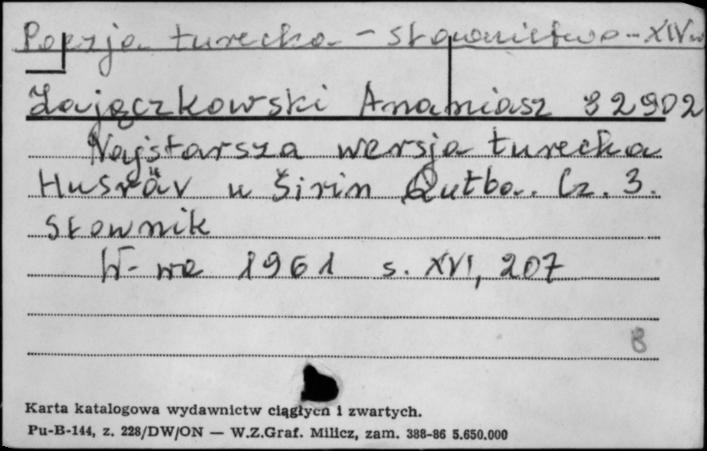 Poezja turecka - słownictwo - XIV w
Zajączkowski Ananiasz 82902
Najstarsza wersja turecka
Husräv u Širin Qutba. Cz. 3.
Słownik
W-wa 1961 s. XVI, 207
8
Karta katalogowa wydawnictw ciągłych i zwartych.
Pu-B-144, z. 228/DW/ON — W.Z.Graf. Milicz, zam. 388-86 5.650.000